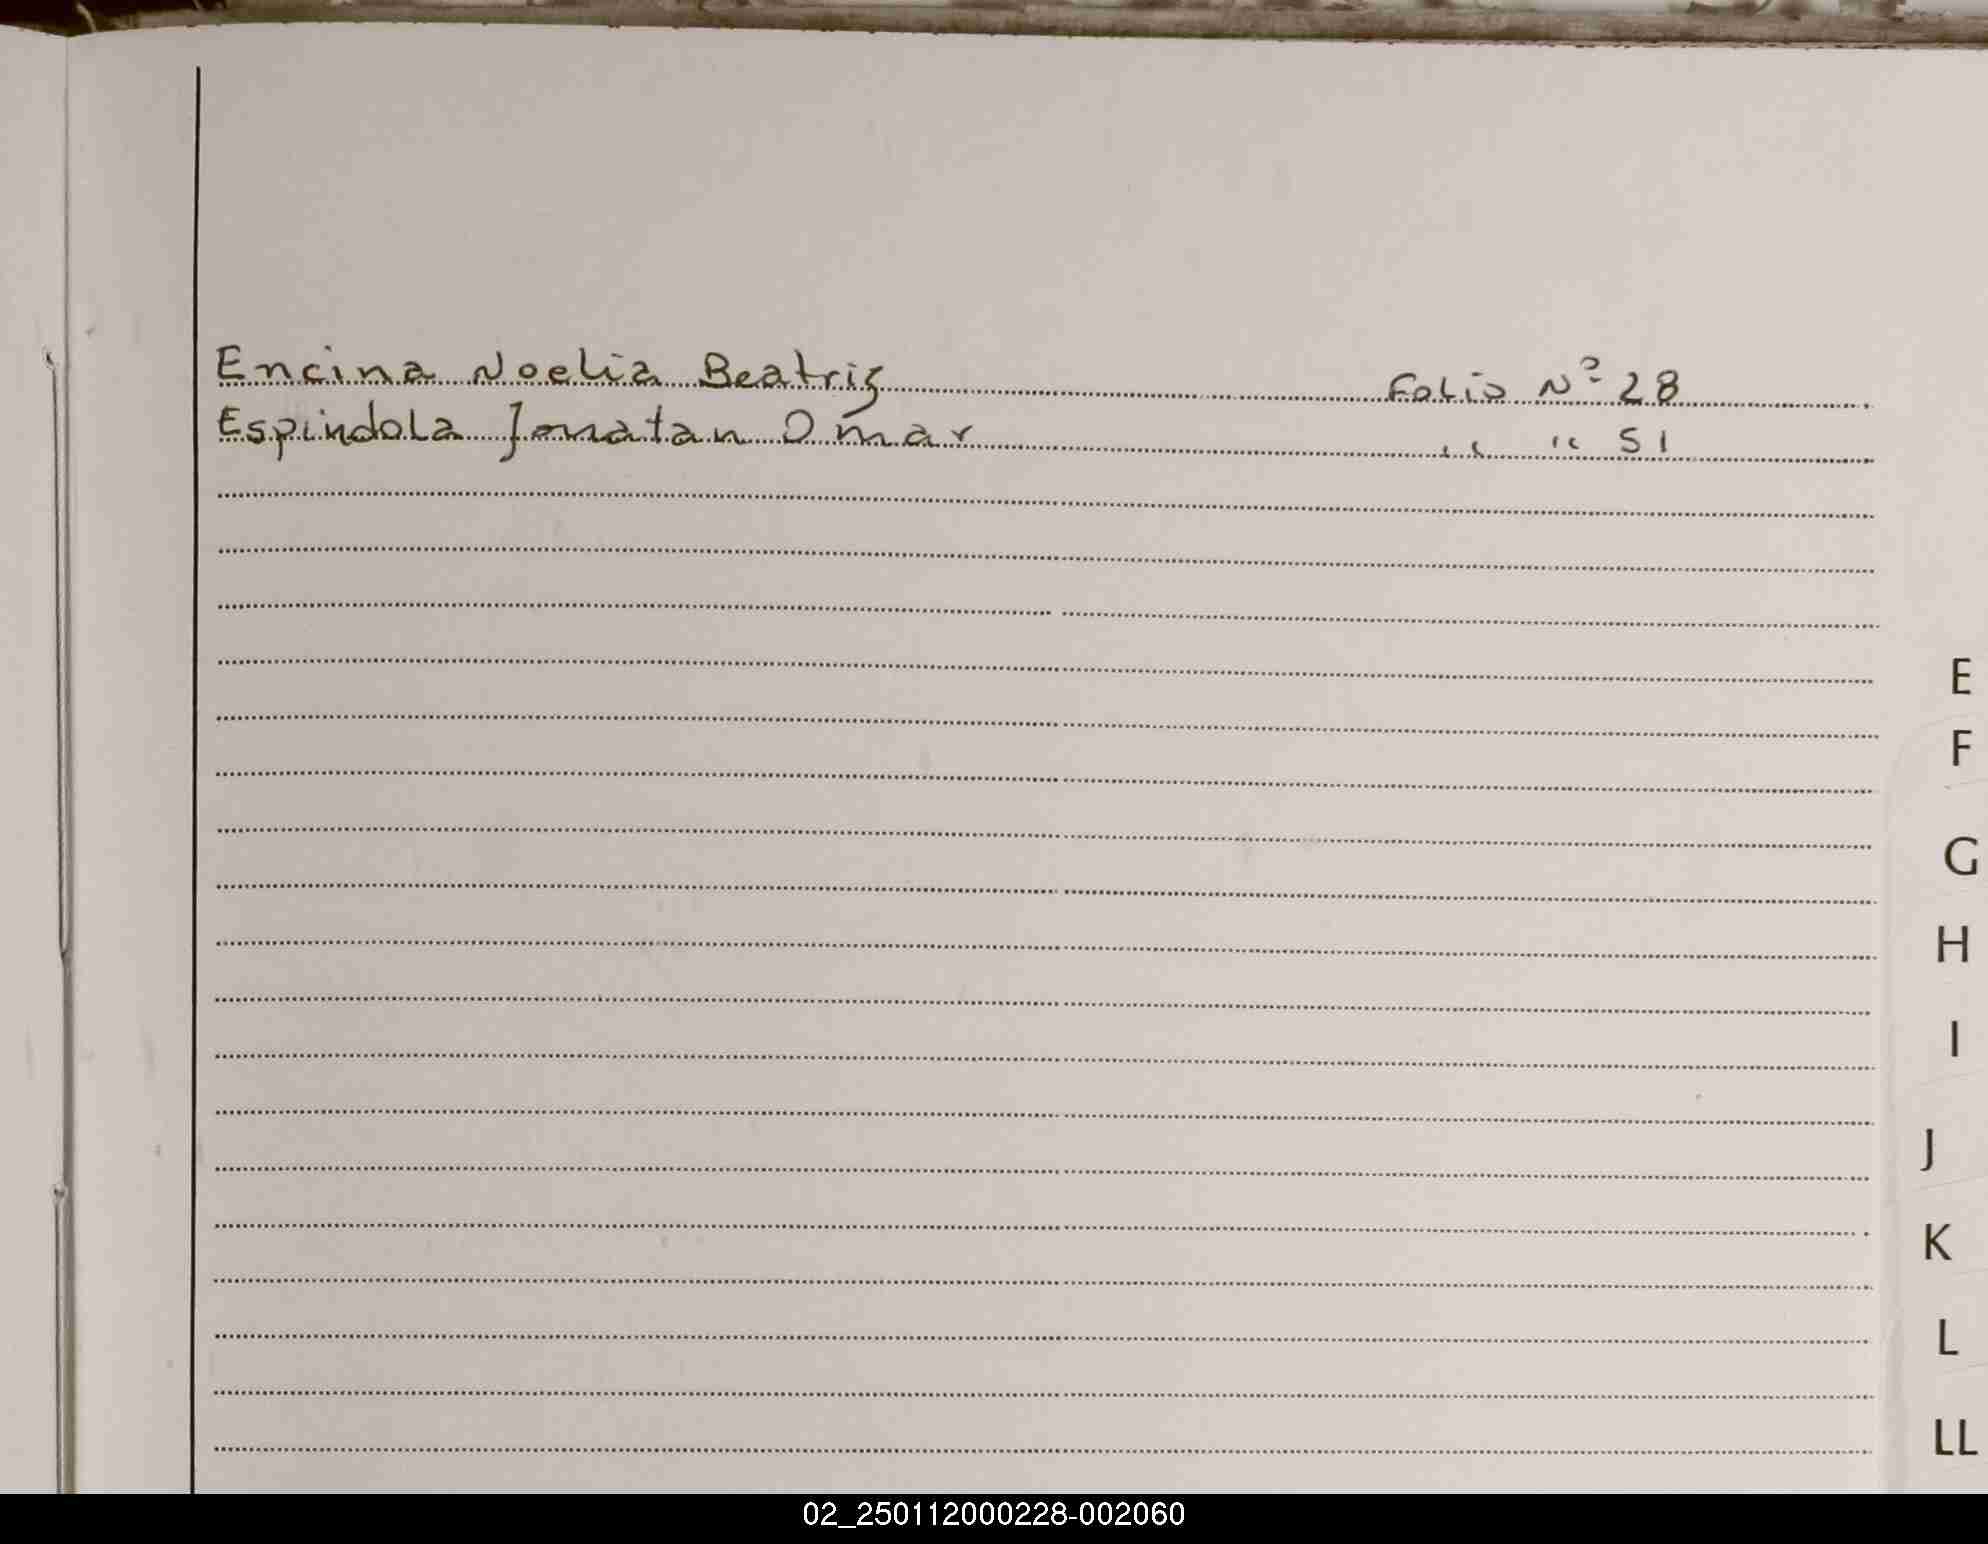 Encina Noelia Beatriz Folio Nº 28
Espindola Jonatan Omar " " 51
E
F
G
H
I
J
K
L
LL
02_250112000228-002060